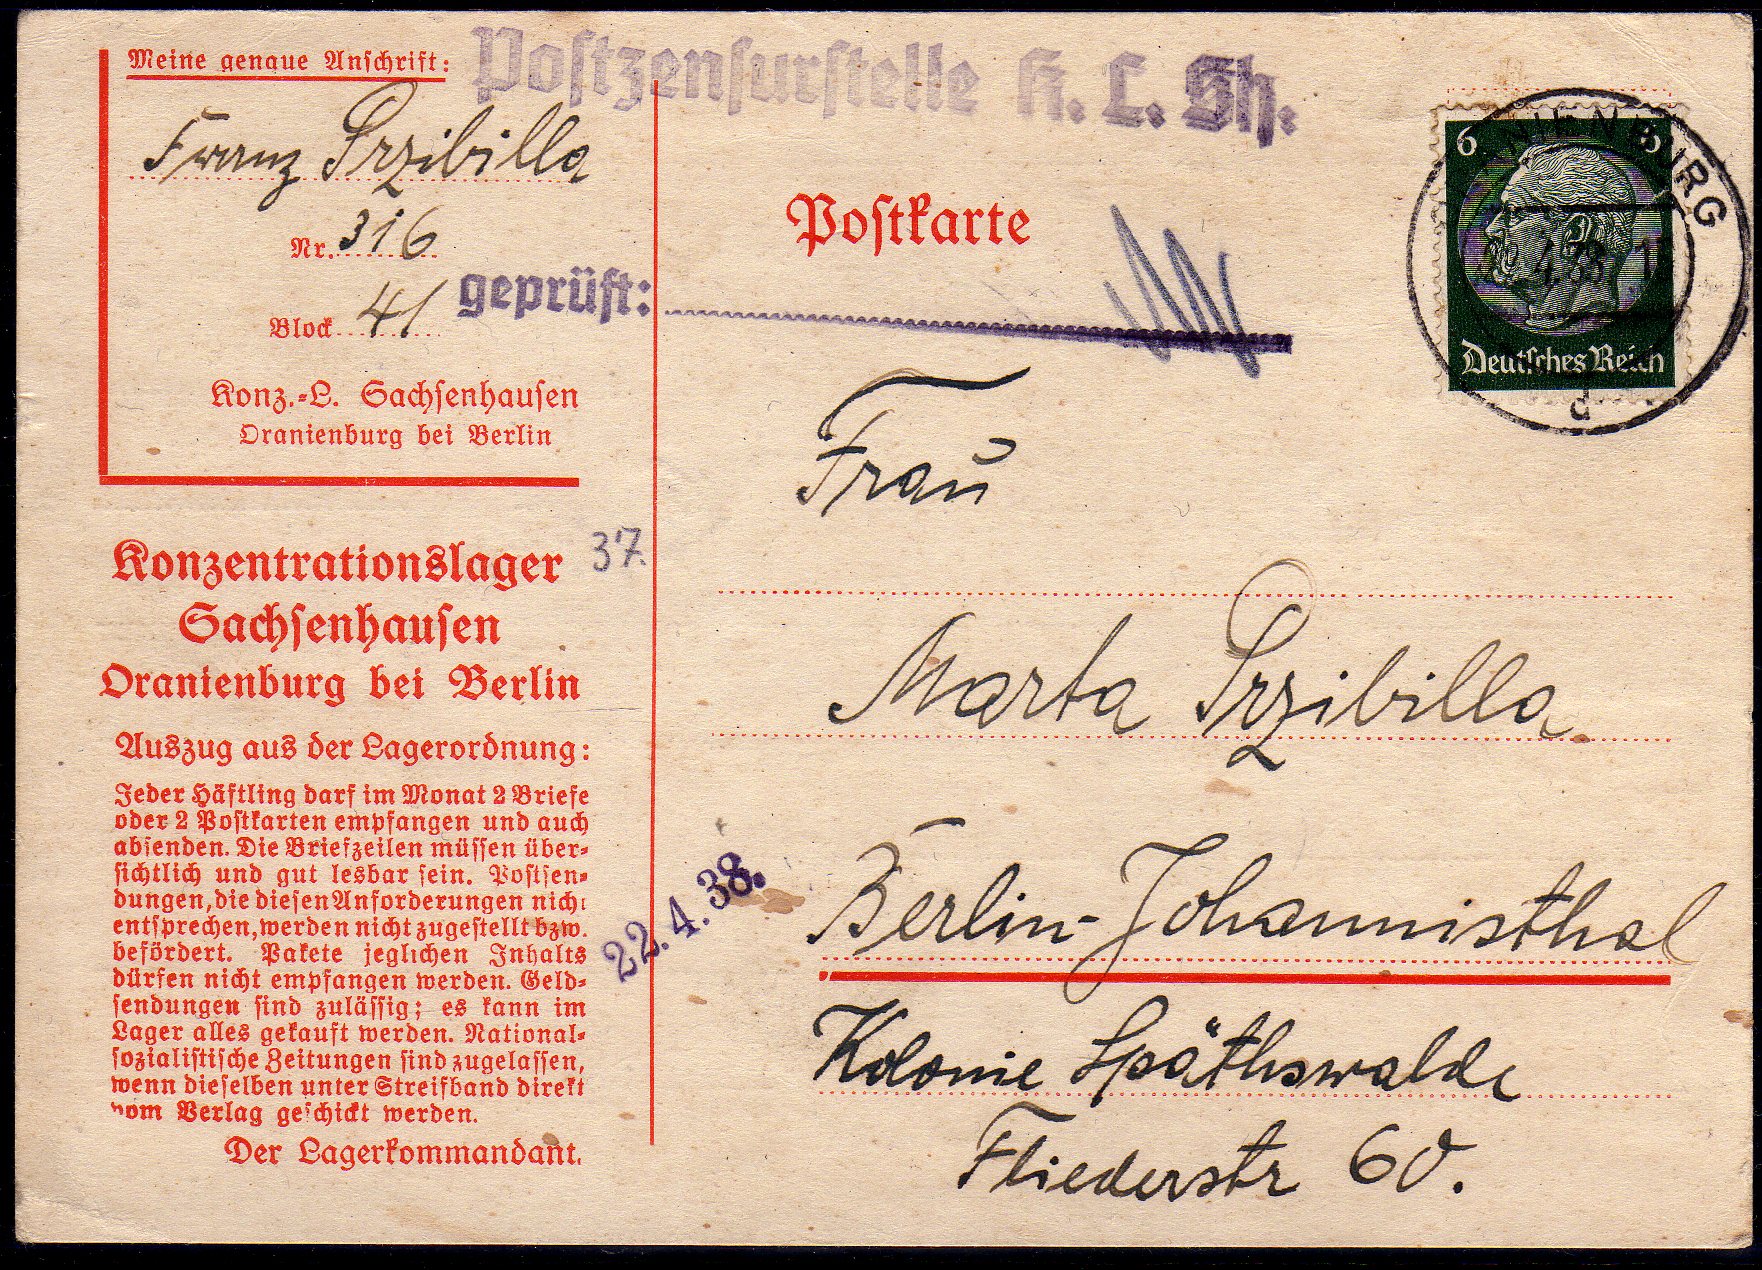 Meine genaue Anschrift:
Franz Przibilla
Nr. 316
Block 41
Konz.-L. Sachsenhausen
Oranienburg bei Berlin
Postzensurstelle K. L. Sh.
geprüft:
Postkarte
6 6
Deutsches Reich
NIENBURG
4.38
d
Konzentrationslager
Sachsenhausen
Oranienburg bei Berlin
37.
Auszug aus der Lagerordnung:
Jeder Häftling darf im Monat 2 Briefe
oder 2 Postkarten empfangen und auch
absenden. Die Briefzeilen müssen über-
sichtlich und gut lesbar sein. Postsen-
dungen, die diesen Anforderungen nicht
entsprechen, werden nicht zugestellt bzw.
befördert. Pakete jeglichen Inhalts
dürfen nicht empfangen werden. Geld-
sendungen sind zulässig; es kann im
Lager alles gekauft werden. National-
sozialistische Zeitungen sind zugelassen,
wenn dieselben unter Streifband direkt
vom Verlag geschickt werden.
Der Lagerkommandant.
22.4.38.
Frau
Marta Przibilla
Berlin-Johannisthal
Kolonie Späthswalde
Fliederstr 60.